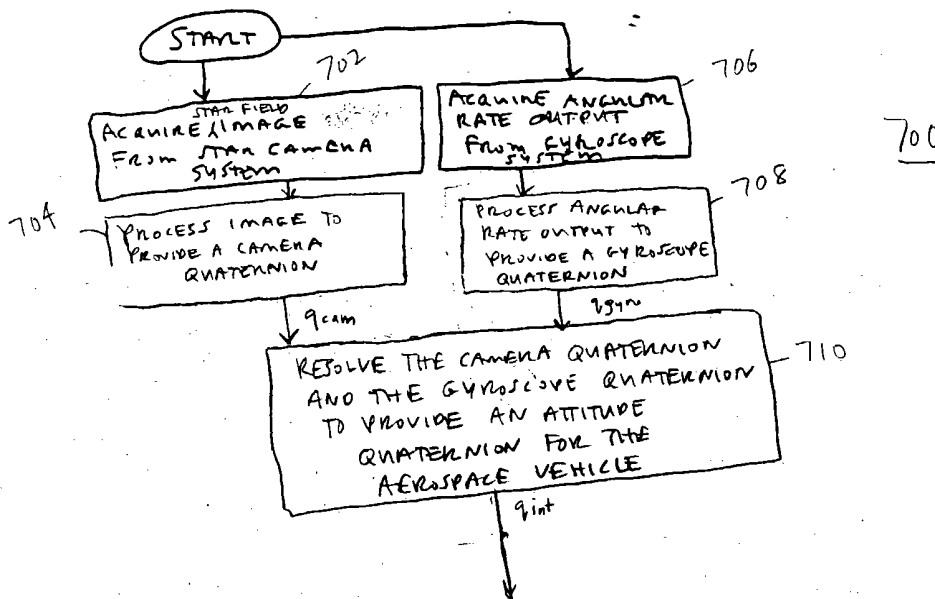 START
702
STAR FIELD
ACQUIRE IMAGE
FROM STAR CAMERA
SYSTEM
706
ACQUIRE ANGULAR
RATE OUTPUT
FROM GYROSCOPE
SYSTEM
700
704
PROCESS IMAGE TO
PROVIDE A CAMERA
QUATERNION
708
PROCESS ANGULAR
RATE OUTPUT TO
PROVIDE A GYROSCOPE
QUATERNION
qcam
qgyro
RESOLVE THE CAMERA QUATERNION
AND THE GYROSCOPE QUATERNION
TO PROVIDE AN ATTITUDE
QUATERNION FOR THE
AEROSPACE VEHICLE
710
qint